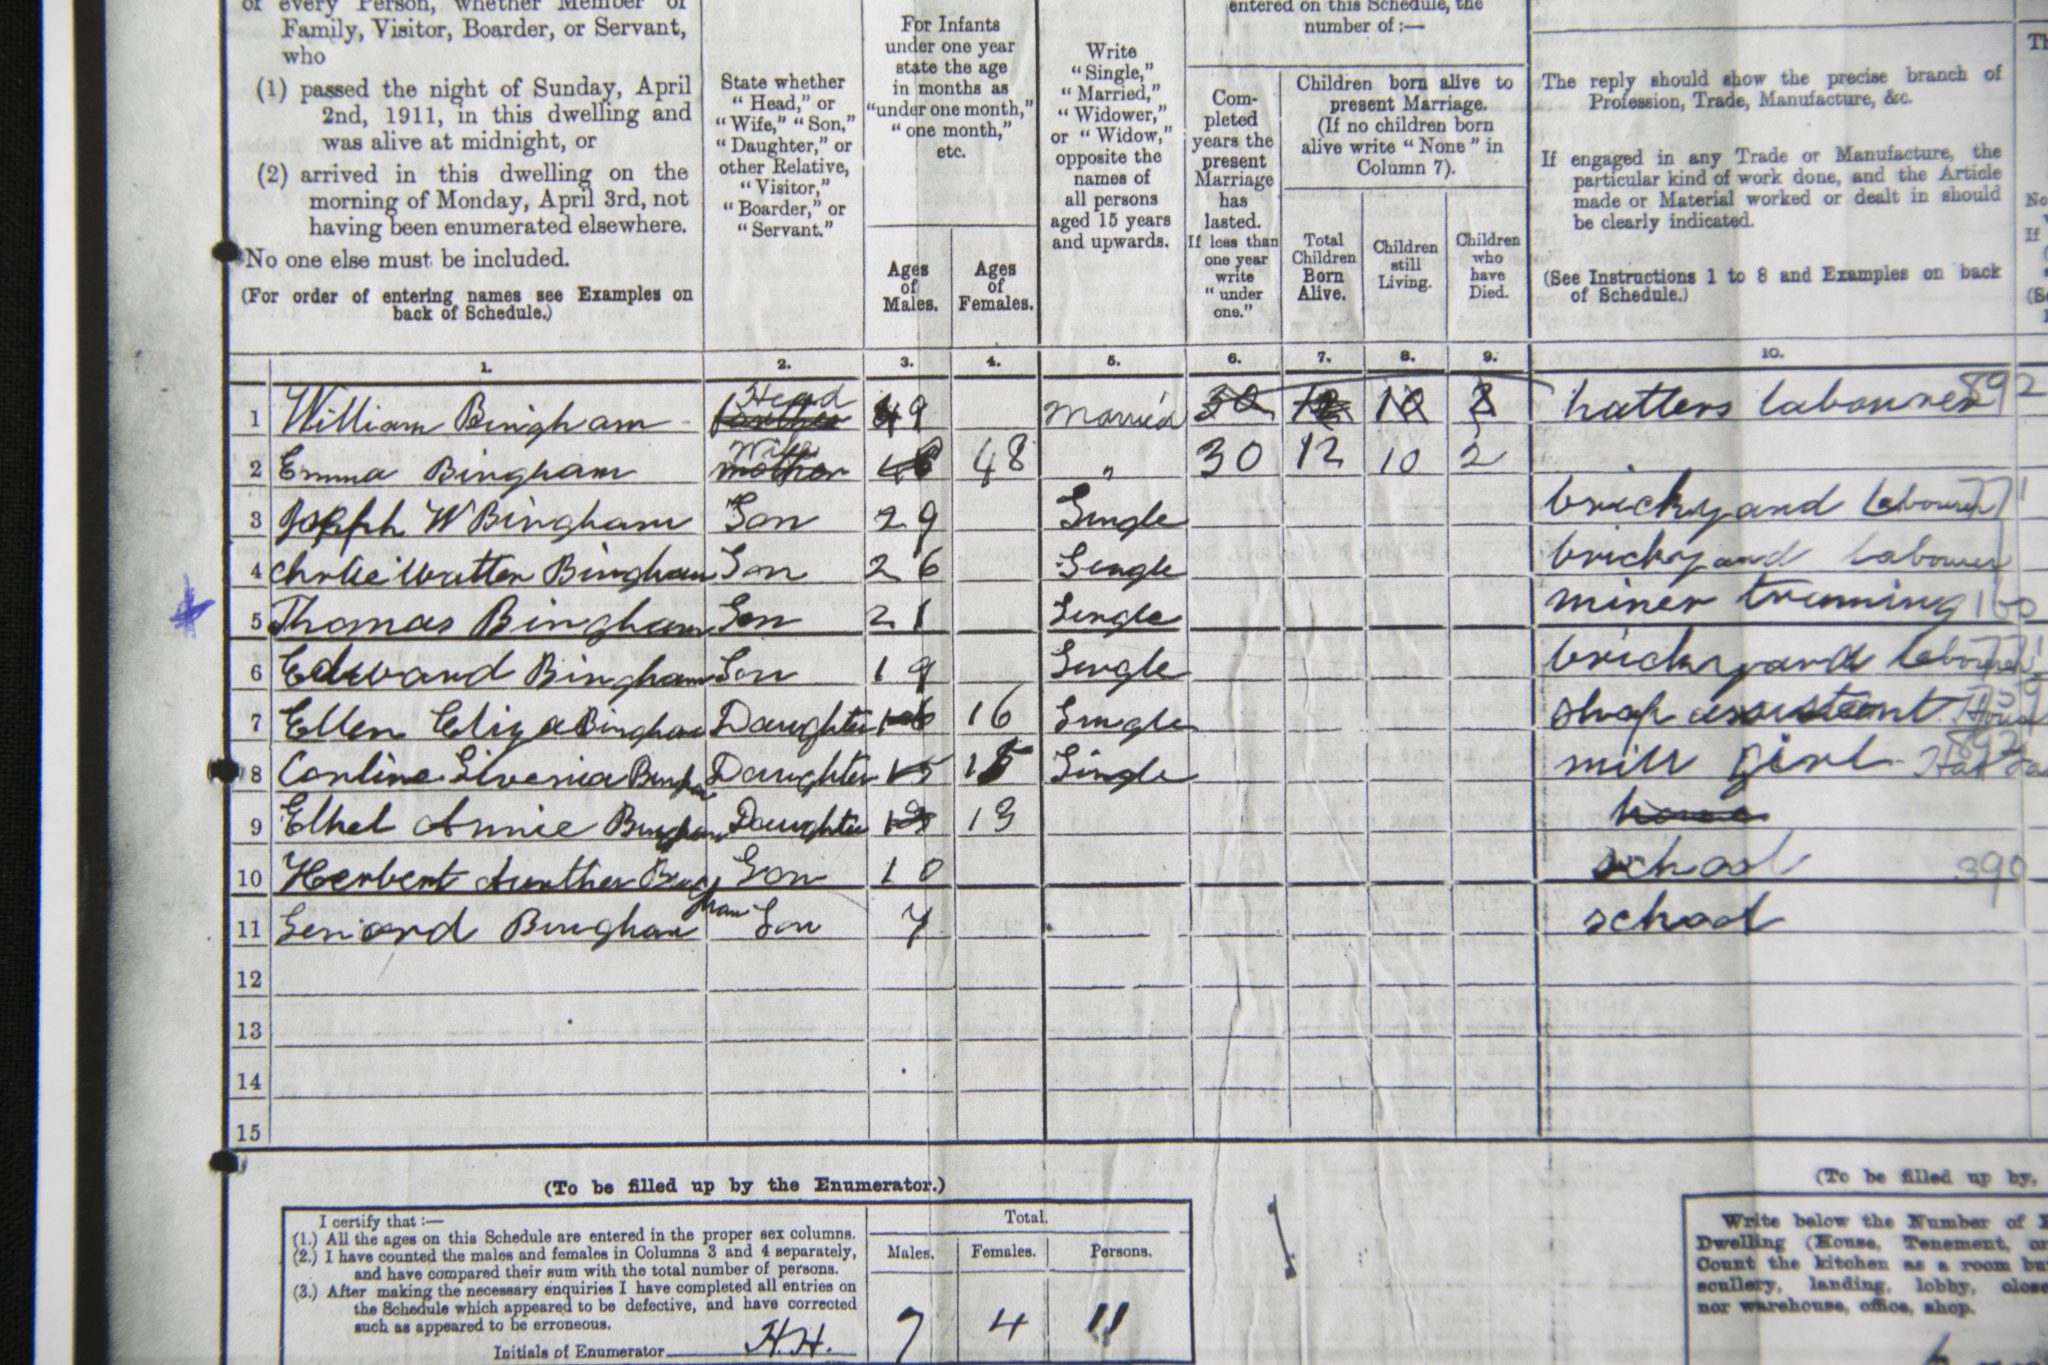 of every Person, whether Member of
Family, Visitor, Boarder, or Servant,
who
(1) passed the night of Sunday, April
2nd, 1911, in this dwelling and
was alive at midnight, or
(2) arrived in this dwelling on the
morning of Monday, April 3rd, not
having been enumerated elsewhere.
No one else must be included.
(For order of entering names see Examples on
back of Schedule.)
State whether
"Head," or
"Wife," "Son,"
"Daughter," or
other Relative,
"Visitor,"
"Boarder," or
"Servant."
For Infants
under one year
state the age
in months as
"under one month,"
"one month,"
etc.
Ages
of
Males.
Ages
of
Females.
Write
"Single,"
"Married,"
"Widower,"
or "Widow,"
opposite the
names of
all persons
aged 15 years
and upwards.
entered on this Schedule, the
number of:—
Com-
pleted
years the
present
Marriage
has
lasted.
If less than
one year
write
"under
one."
Children born alive to
present Marriage.
(If no children born
alive write "None" in
Column 7).
Total
Children
Born
Alive.
Children
still
Living.
Children
who
have
Died.
The reply should show the precise branch of
Profession, Trade, Manufacture, &c.
If engaged in any Trade or Manufacture, the
particular kind of work done, and the Article
made or Material worked or dealt in should
be clearly indicated.
(See Instructions 1 to 8 and Examples on back
of Schedule.)
1. 2. 3. 4. 5. 6. 7. 8. 9. 10.
1 William Bingham father Head 49 Married 30 12 10 2 hatters labourer 892
2 Emma Bingham mother Wife 48 48 " 30 12 10 2
3 Joseph W Bingham Son 29 Single brickyard labourer 771
4 Chrlie Walter Bingham Son 26 Single brickyard labourer
5 Thomas Bingham Son 21 Single miner 160
6 Edward Bingham Son 19 Single brickyard labourer 771
7 Ellen Eliza Bingham Daughter 16 16 Single shop assistant
8 Carline Liveria Bingham Daughter 15 15 Single mill girl 892 Hat
9 Ethel Annie Bingham Daughter 13 13 home
10 Herbert Aurther Bingham Son 10 school 390
11 Genard Bingham Son 7 school
12
13
14
15
(To be filled up by the Enumerator.)
I certify that:—
(1.) All the ages on this Schedule are entered in the proper sex columns.
(2.) I have counted the males and females in Columns 3 and 4 separately,
and have compared their sum with the total number of persons.
(3.) After making the necessary enquiries I have completed all entries on
the Schedule which appeared to be defective, and have corrected
such as appeared to be erroneous.
Initials of Enumerator H.H.
Total.
Males. Females. Persons.
7 4 11
(To be filled up by,
Write below the Number of
Dwelling (House, Tenement, or
Count the kitchen as a room bu
scullery, landing, lobby, close
nor warehouse, office, shop.